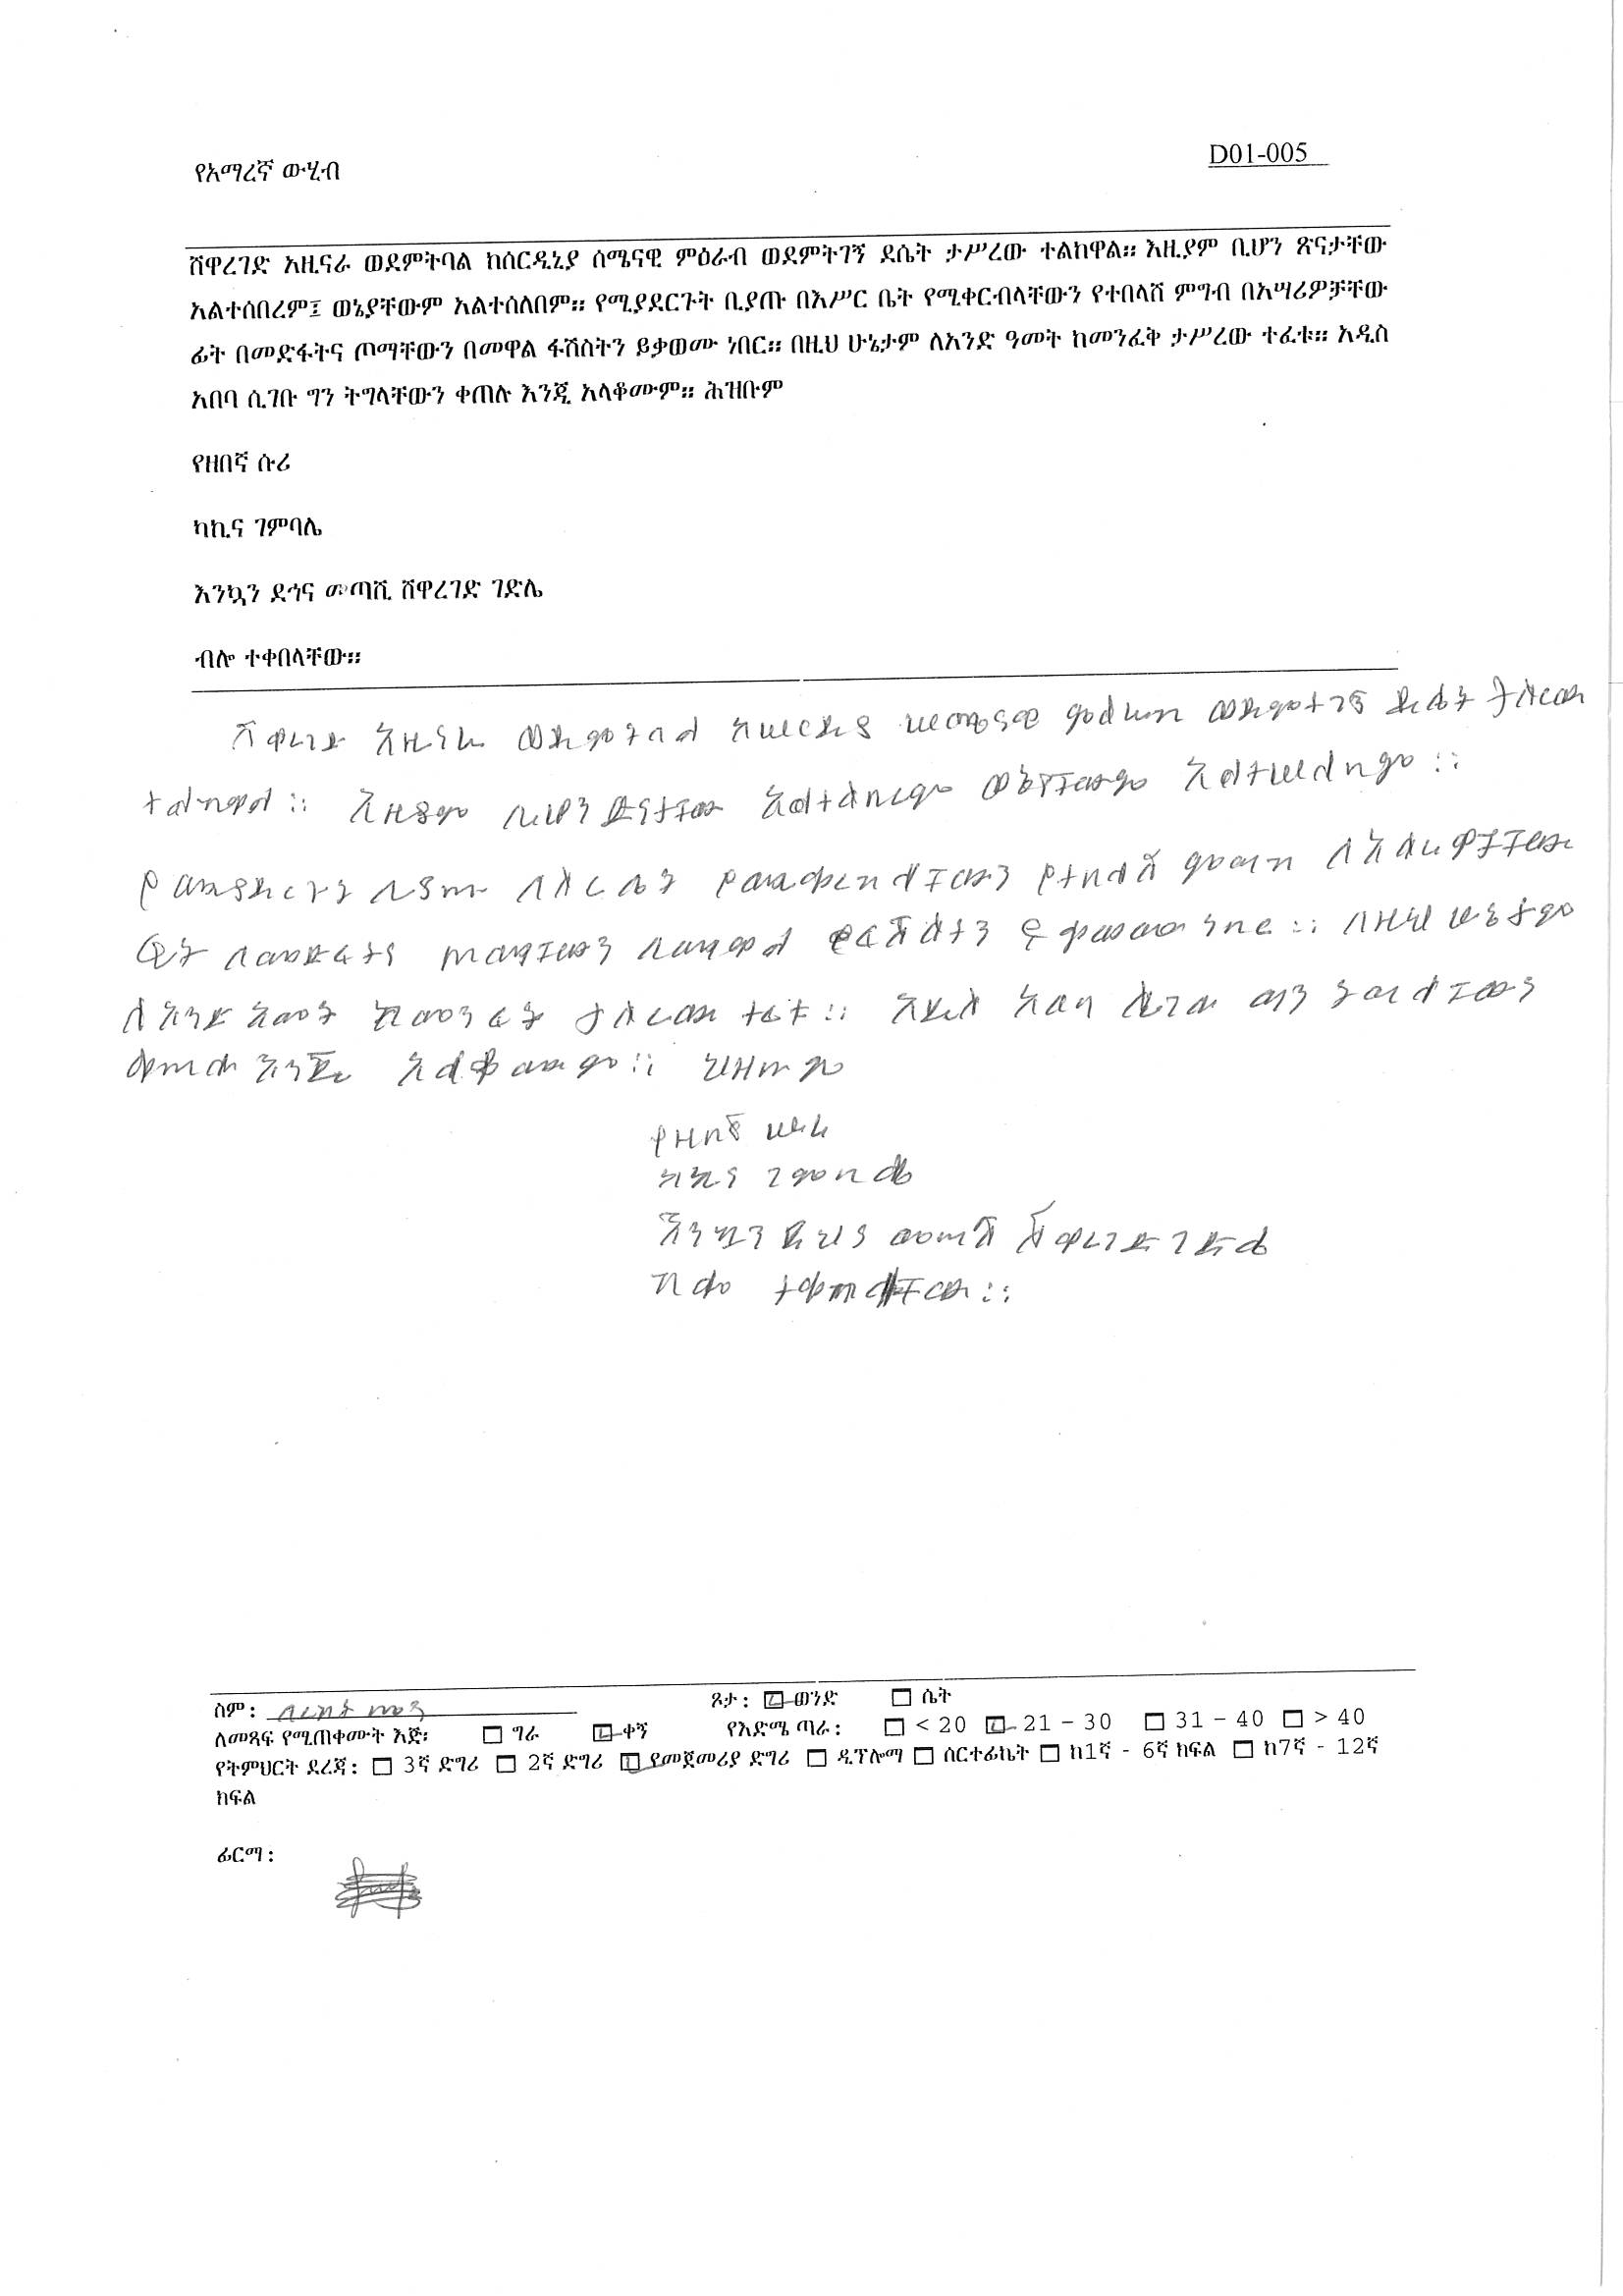 የአማረኛ ውሂብ
D01-005
ሸዋረገድ አዚናራ ወደምትባል ከሰርዲኒያ ሰሜናዊ ምዕራብ ወደምትገኝ ደሴት ታሥረው ተልከዋል። እዚያም ቢሆን ጽናታቸው
አልተሰበረም፤ ወኔያቸውም አልተሰለበም። የሚያደርጉት ቢያጡ በእሥር ቤት የሚቀርብላቸውን የተበላሸ ምግብ በአሣሪዎቻቸው
ፊት በመድፋትና ጦማቸውን በመዋል ፋሽስትን ይቃወሙ ነበር። በዚህ ሁኔታም ለአንድ ዓመት ከመንፈቅ ታሥረው ተፈቱ። አዲስ
አበባ ሲገቡ ግን ትግላቸውን ቀጠሉ እንጂ አላቆሙም። ሕዝቡም
የዘበኛ ሱሪ
ካኪና ገምባሌ
እንኳን ደኅና መጣሺ ሸዋረገድ ገድሌ
ብሎ ተቀበላቸው።
ሸዋረገድ አዚናራ ወደምትባል ወደምትገኝ ደሴት ታስረው
ተልካዋል። እዚያም ቢሆን ጽናታቸው አልተሰበረም ወኔያቸውም አልተሠለበም።
የሚያደርጉት ቢያጡ በእስር ቤት የሚቀርብላቸውን የተበላሸ ምግብ በአሳሪዎቻቸው
ፊት በመድፋትና ጦማቸውን በመዋል ፋሽስትን ይቃወሙ ነበር። በዚህ ሁኔታም
ለአንድ አመት ከመንፈቅ ታስረው ተፈቱ። አዲስ አበባ ሲገቡ ግን ትግላቸውን
ቀጠሉ እንጂ አላቆሙም። ህዝቡም
የዘበኛ ሱሪ
ካኪና ገምባሌ
እንኳን ደህና መጣሽ ሸዋረገድ ገድሌ
ብሎ ተቀበላቸው።
ስም:
ጾታ: ወንድ ሴት
ለመጻፍ የሚጠቀሙት እጅ፡ ግራ ቀኝ የእድሜ ጣራ: < 20 21 – 30 31 – 40 > 40
የትምህርት ደረጃ: 3ኛ ድግሪ 2ኛ ድግሪ የመጀመሪያ ድግሪ ዲፕሎማ ሰርተፊኬት ከ1ኛ - 6ኛ ክፍል ከ7ኛ - 12ኛ
ክፍል
ፊርማ: